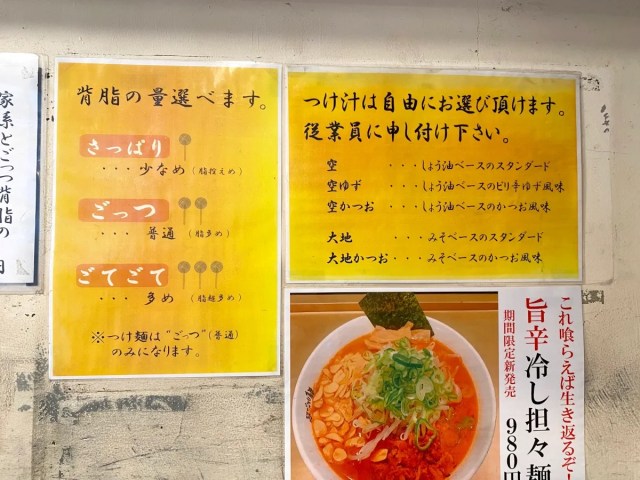 家系とごっつ背脂の
円
背脂の量選べます。
さっぱり
・・・ 少なめ（脂控えめ）
ごっつ
・・・ 普通（脂多め）
ごてごて
・・・ 多め（脂超多め）
※つけ麺は"ごっつ"(普通)
のみになります。
つけ汁は自由にお選び頂けます。
従業員に申し付け下さい。
空 ・・・しょう油ベースのスタンダード
空ゆず ・・・しょう油ベースのピリ辛ゆず風味
空かつお ・・・しょう油ベースのかつお風味
大地 ・・・みそベースのスタンダード
大地かつお・・・みそベースのかつお風味
これ喰らえば生き返るぞ!
旨辛冷し担々麺
期間限定新発売
980円